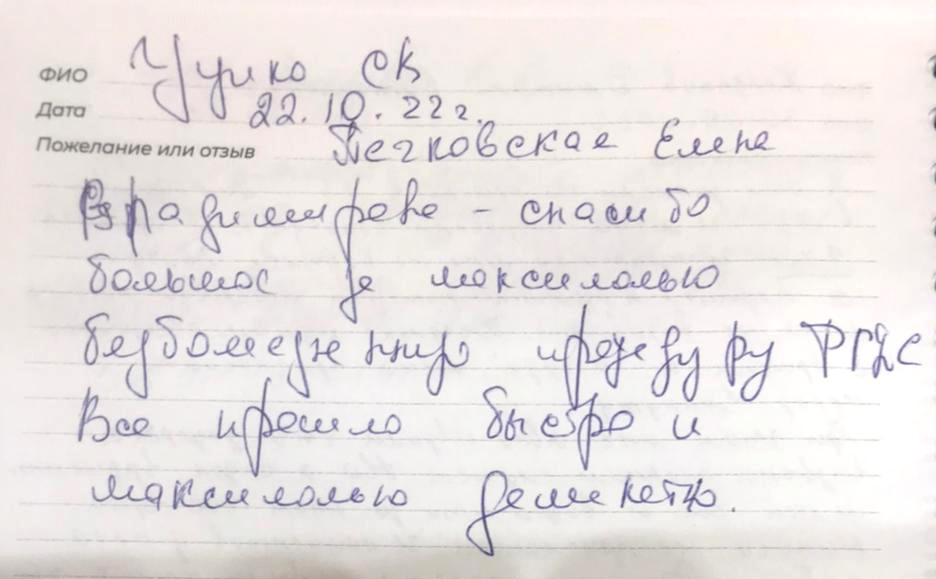 ФИО Чуико СК
Дата 22.10.22г.
Пожелание или отзыв Печковская Елена
Владимировна - спасибо
большое за максимально
безболезненную процедуру ФГДС
Все прошло быстро и
максимально деликатно.